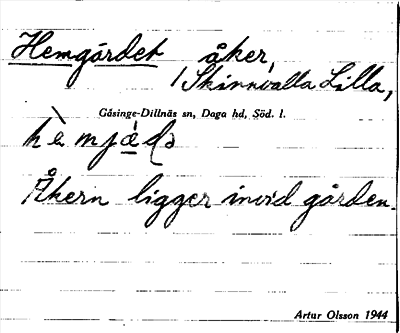 Hemgärdet åker,
/ Skinnvalla Lilla,
Gåsinge-Dillnäs sn, Daga hd, Söd. l.
Åkern ligger invid gården.
Artur Olsson 1944